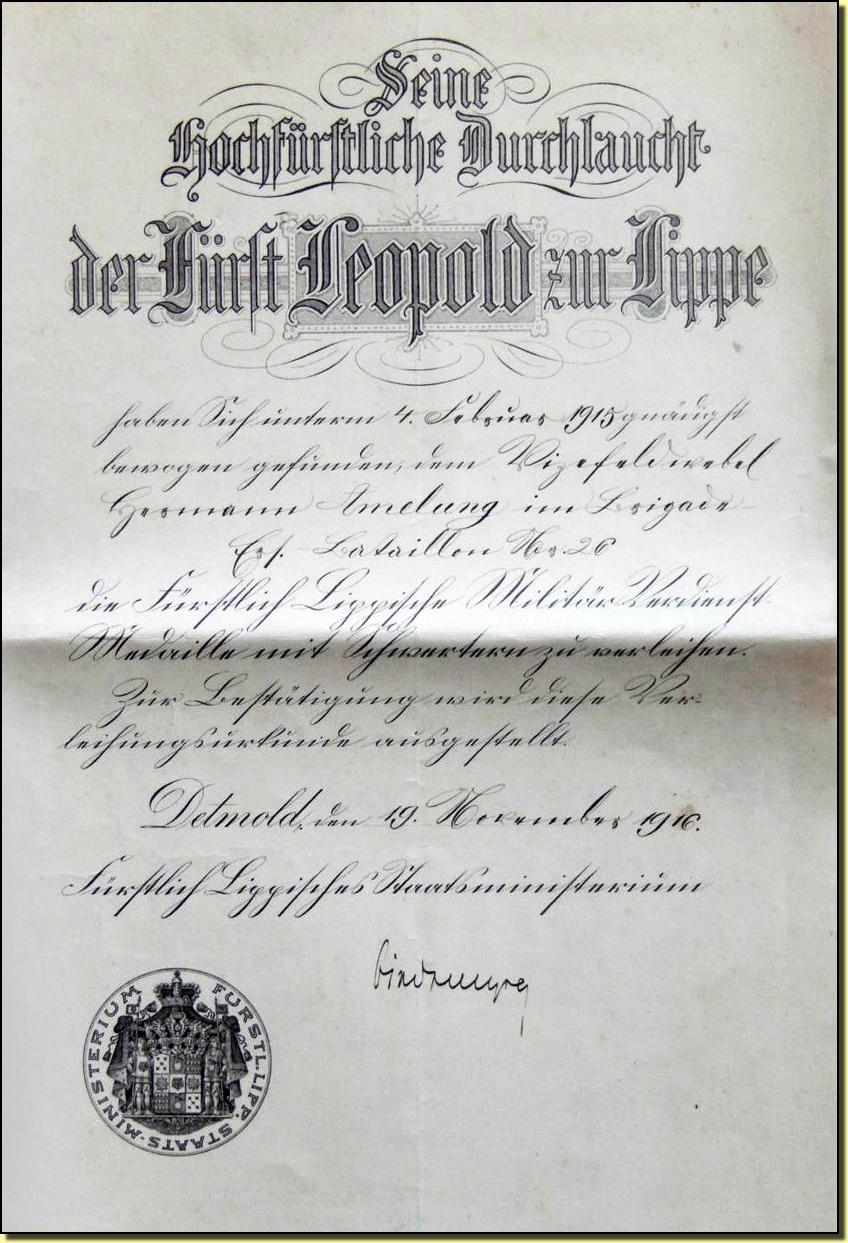 Seine
Hochfürstliche Durchlaucht
der Fürst Leopold zur Lippe
haben Sich unterm 4. Februar 1915 gnädigst
bewogen gefunden, dem Vizefeldwebel
Hermann Amelung im Brigade-
Ers. - Bataillon Nr. 26
die Fürstlich Lippische Militär Verdienst-
Medaille mit Schwertern zu verleihen.
Zur Bestätigung wird diese Ver-
leihungsurkunde ausgestellt.
Detmold, den 19. November 1916.
Fürstlich Lippisches Staatsministerium
FÜRSTL. LIPP. STAATS-MINISTERIUM